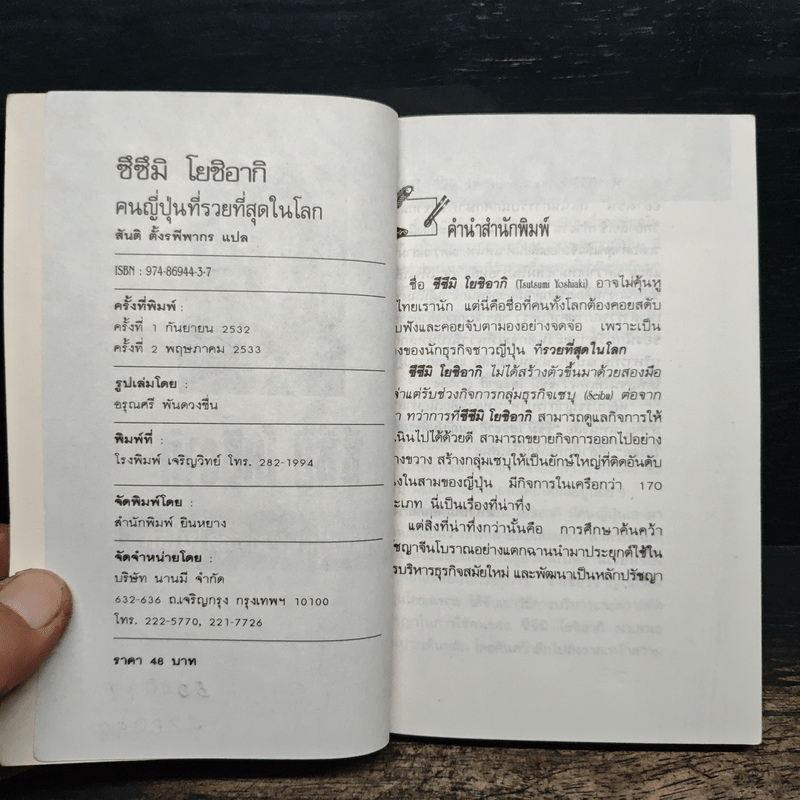 ซึซึมิ โยชิอากิ
คนญี่ปุ่นที่รวยที่สุดในโลก
สันติ ตั้งรพีพากร แปล
ISBN : 974-86944-3-7
ครั้งที่พิมพ์ :
ครั้งที่ 1 กันยายน 2532
ครั้งที่ 2 พฤษภาคม 2533
รูปเล่มโดย :
อรุณศรี พันดวงชื่น
พิมพ์ที่ :
โรงพิมพ์ เจริญวิทย์ โทร. 282-1994
จัดพิมพ์โดย :
สำนักพิมพ์ ยินหยาง
จัดจำหน่ายโดย :
บริษัท นานมี จำกัด
632-636 ถ.เจริญกรุง กรุงเทพฯ 10100
โทร. 222-5770, 221-7726
ราคา 48 บาท
คำนำสำนักพิมพ์
ชื่อ ซึซึมิ โยชิอากิ (Tsutsumi Yoshiaki) อาจไม่คุ้นหู
ไทยเรานัก แต่นี่คือชื่อที่คนทั้งโลกต้องคอยสดับ
บฟังและคอยจับตามองอย่างจดจ่อ เพราะเป็น
องนักธุรกิจชาวญี่ปุ่น ที่รวยที่สุดในโลก
ซึซึมิ โยชิอากิ ไม่ได้สร้างตัวขึ้นมาด้วยสองมือ
แต่รับช่วงกิจการกลุ่มธุรกิจเซบุ (Seibu) ต่อจาก
ทว่าการที่ซึซึมิ โยชิอากิ สามารถดูแลกิจการให้
เนินไปได้ด้วยดี สามารถขยายกิจการออกไปอย่าง
างขวาง สร้างกลุ่มเซบุให้เป็นยักษ์ใหญ่ที่ติดอันดับ
นึงในสามของญี่ปุ่น มีกิจการในเครือกว่า 170
ะเภท นี่เป็นเรื่องที่น่าทึ่ง
แต่สิ่งที่น่าทึ่งกว่านั้นคือ การศึกษาค้นคว้า
ัชญาจีนโบราณอย่างแตกฉานนำมาประยุกต์ใช้ใน
รบริหารธุรกิจสมัยใหม่ และพัฒนาเป็นหลักปรัชญา